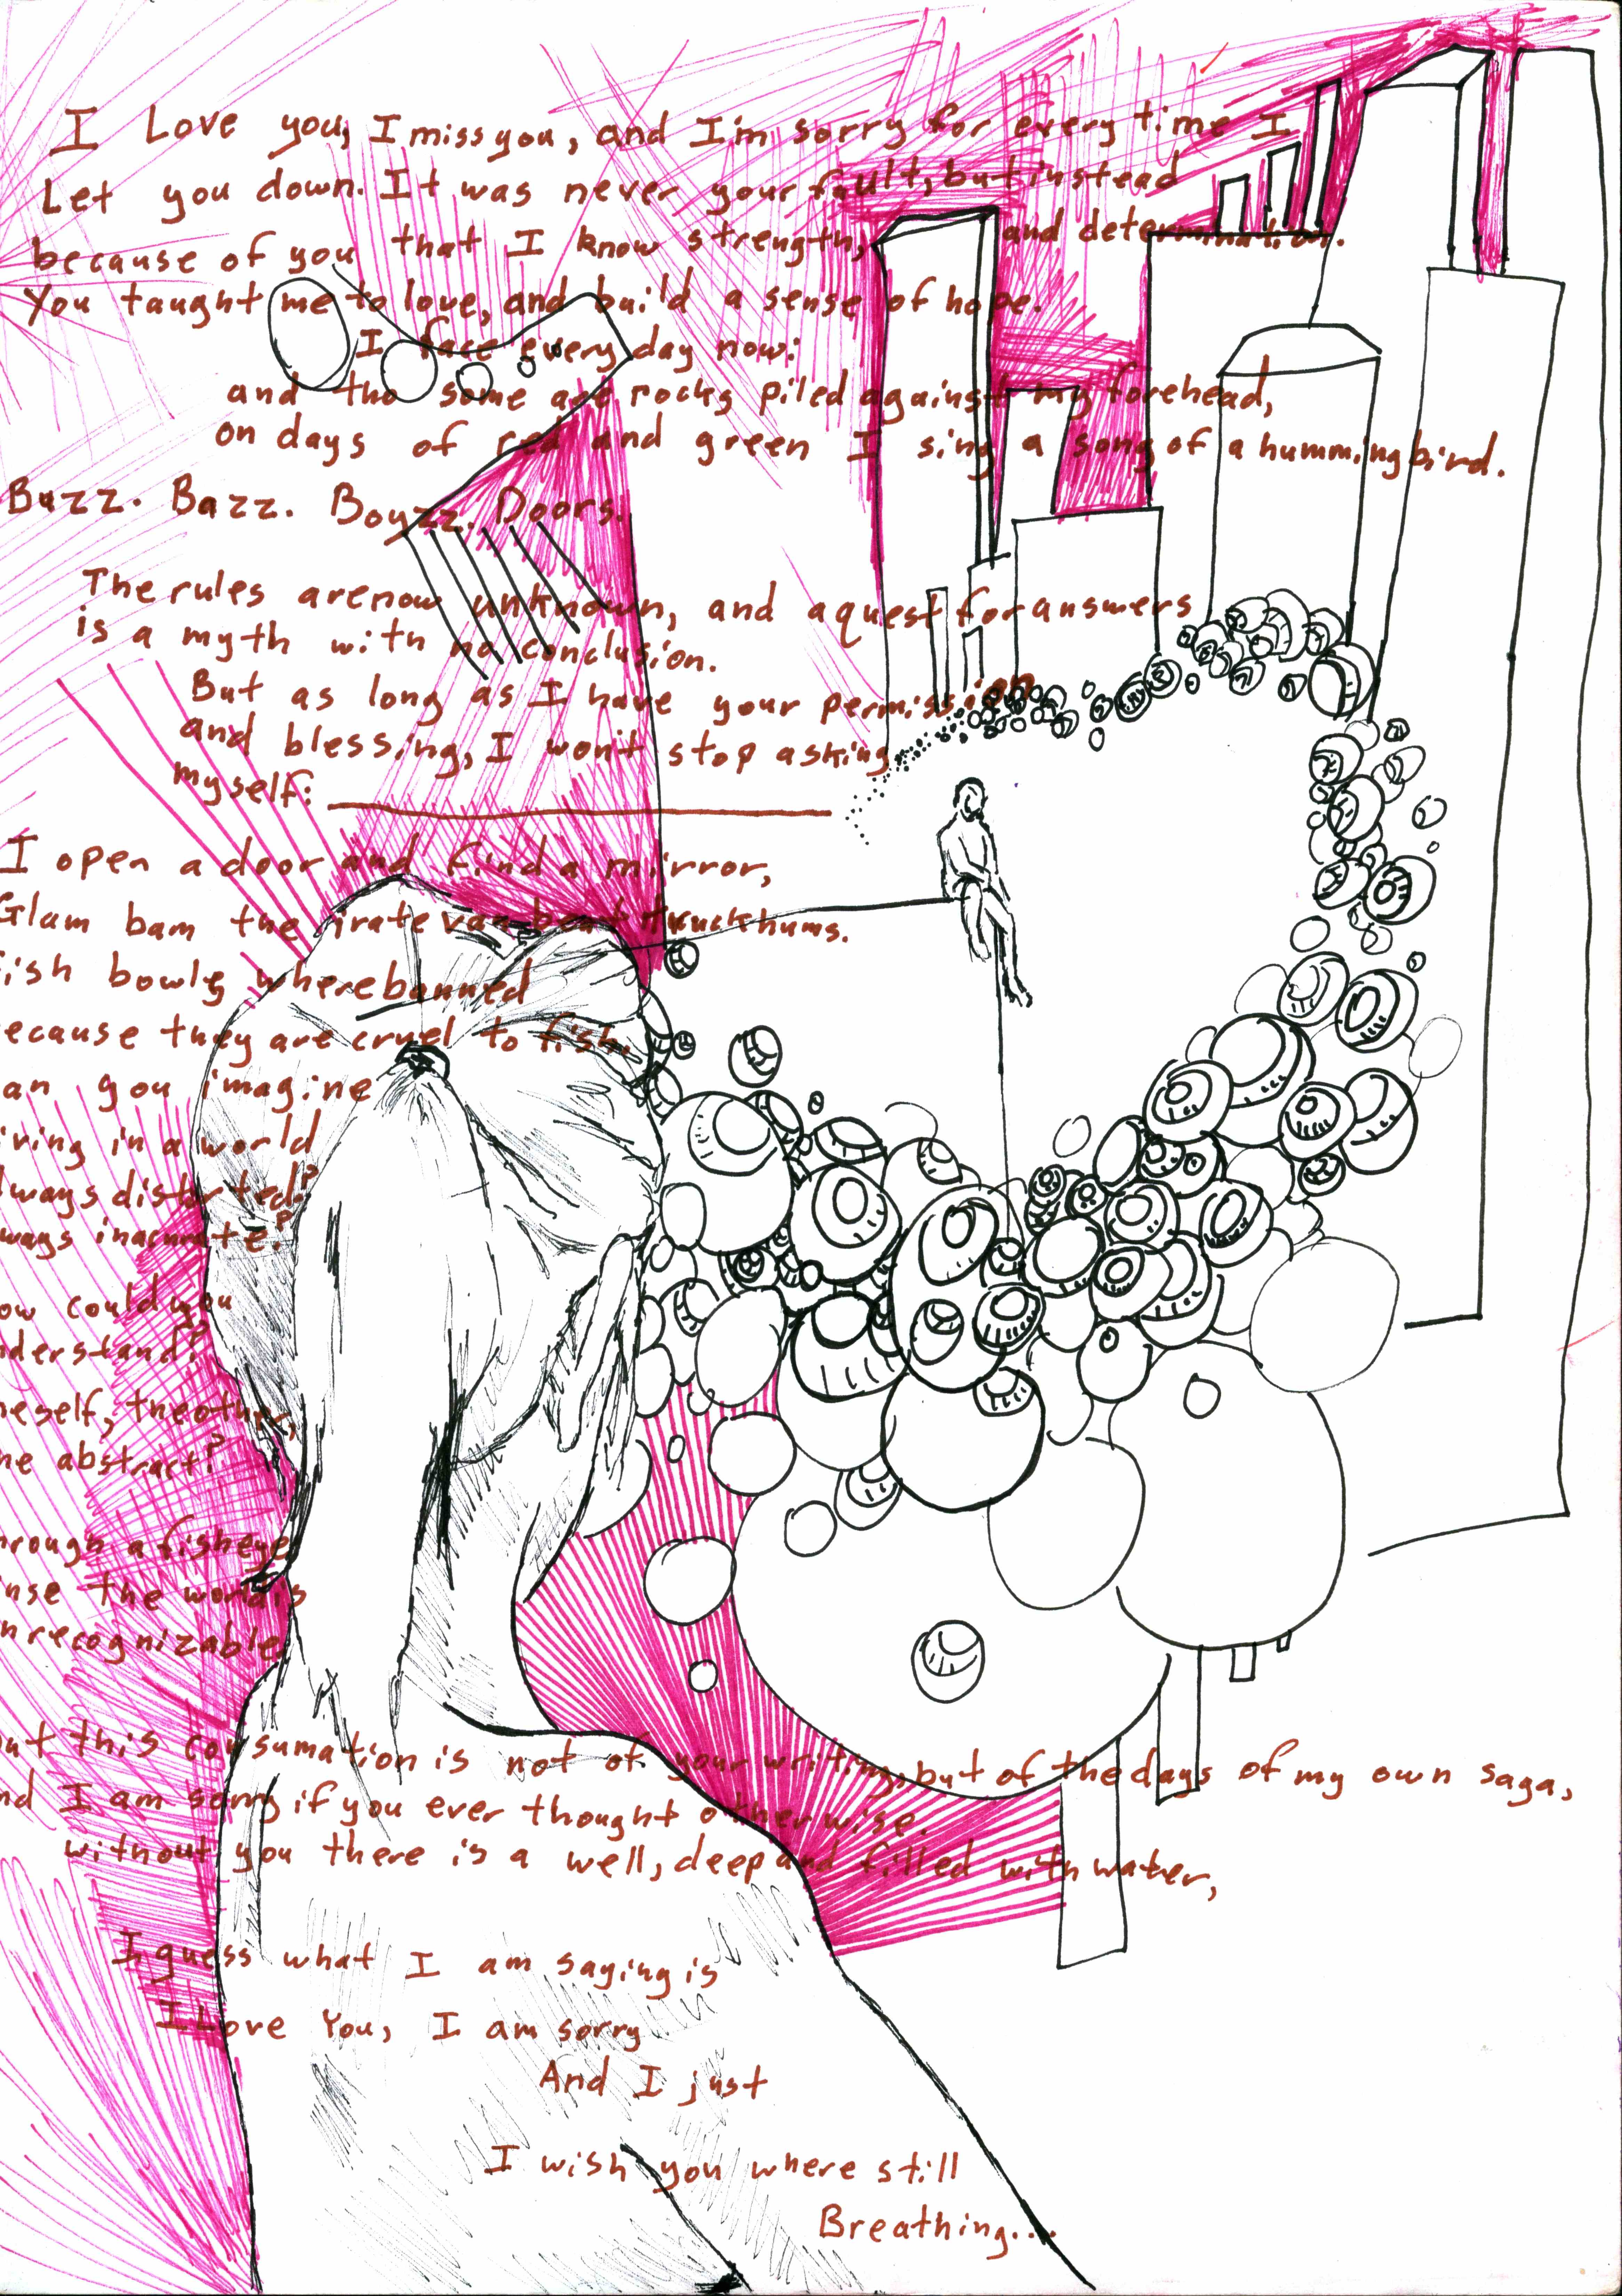 I Love you, I miss you, and I'm sorry for every time I
Let you down. It was never your fault, but instead
because of you that I know strength, and determination.
You taught me to love, and build a sense of hope.
I face every day now:
and tho some are rocks piled against my forehead,
on days of red and green I sing a song of a humming bird.
Buzz. Bazz. Boyzz. Doors.
The rules are now unknown, and a quest for answers
is a myth with no conclusion.
But as long as I have your permission
and blessing, I won't stop asking
myself:
I open a door and find a mirror,
Glam bam the irate van beat truck hums.
ish bowls where banned
ecause they are cruel to fish.
an you imagine
iving in a world
lways distorted?
ways inacurate?
ow could you
nderstand?
heself, the other,
he abstract?
hrough a fisheye
nse the world is
nrecognizable
ut this consumation is not of your writing, but of the days of my own saga,
nd I am sorry if you ever thought otherwise.
without you there is a well, deep and filled with water,
I guess what I am saying is
I Love You, I am sorry
And I just
I wish you where still
Breathing...